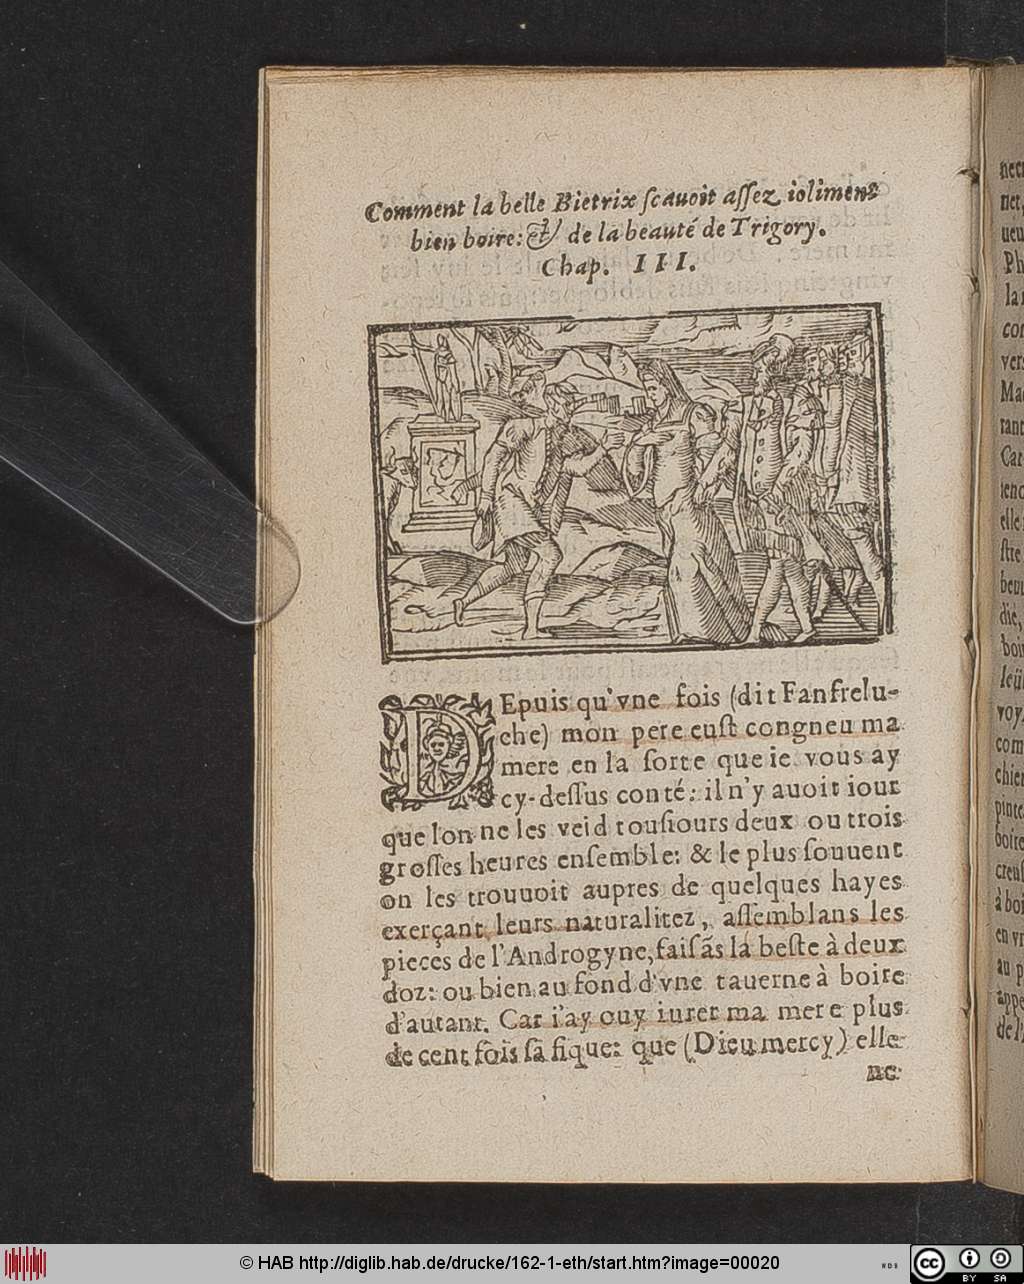 Comment la belle Bietrix scauoit assez ioliment
bien boire: & de la beauté de Trigory.
Chap. III.
DEpuis qu'vne fois (dit Fanfrelu-
che) mon pere eust congneu ma
mere en la sorte que ie vous ay
cy-dessus conté: il n'y auoit iour
que l'on ne les veid tousiours deux ou trois
grosses heures ensemble: & le plus souuent
on les trouuoit aupres de quelques hayes
exerçant leurs naturalitez, assemblans les
pieces de l'Androgyne, faisãs la beste à deux
doz: ou bien au fond d'vne tauerne à boire
d'autant. Car i'ay ouy iurer ma mere plus
de cent fois sã fique: que (Dieu mercy) elle
ne
© HAB http://diglib.hab.de/drucke/162-1-eth/start.htm?image=00020
cc
BY SA